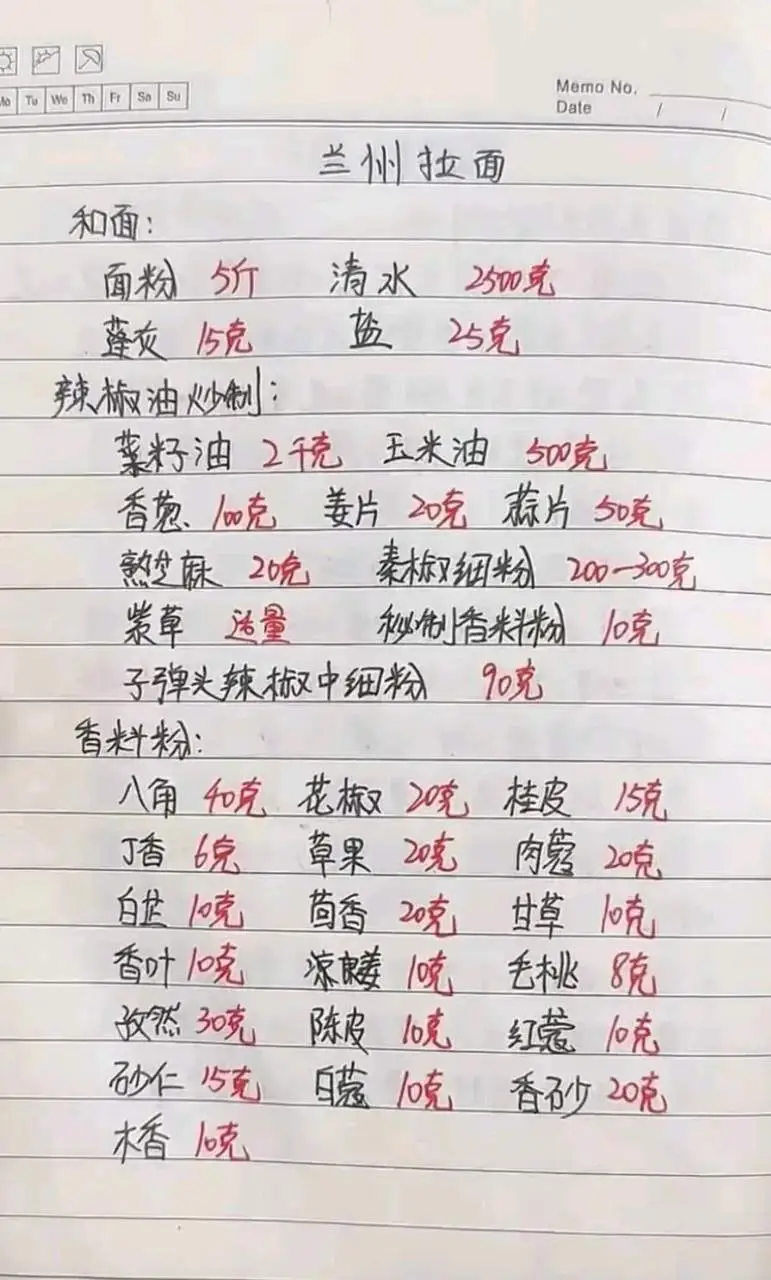 Mo Tu We Th Fr Sa Su
Memo No.
Date / /
兰州拉面
和面:
面粉 5斤 清水 2500克
蓬灰 15克 盐 25克
辣椒油炒制:
菜籽油 2千克 玉米油 500克
香葱 100克 姜片 20克 蒜片 50克
熟芝麻 20克 秦椒细粉 200-300克
紫草 适量 秘制香料粉 10克
子弹头辣椒中细粉 90克
香料粉:
八角 40克 花椒 20克 桂皮 15克
丁香 6克 草果 20克 肉蔻 20克
白芷 10克 茴香 20克 甘草 10克
香叶 10克 凉良姜 10克 毛桃 8克
孜然 30克 陈皮 10克 红蔻 10克
砂仁 15克 白蔻 10克 香砂 20克
木香 10克